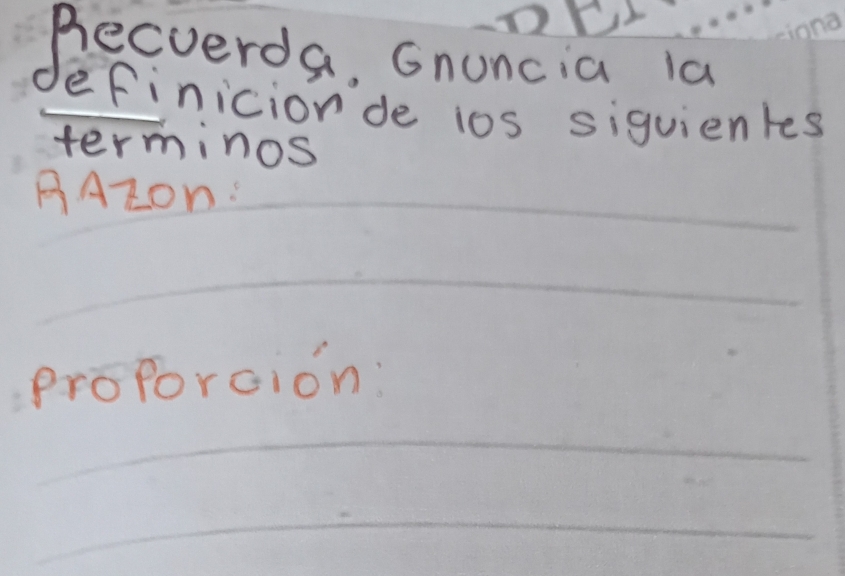 Recuerda. Enuncia la
definicion de los siguientes
terminos
RAZon:
proporción: